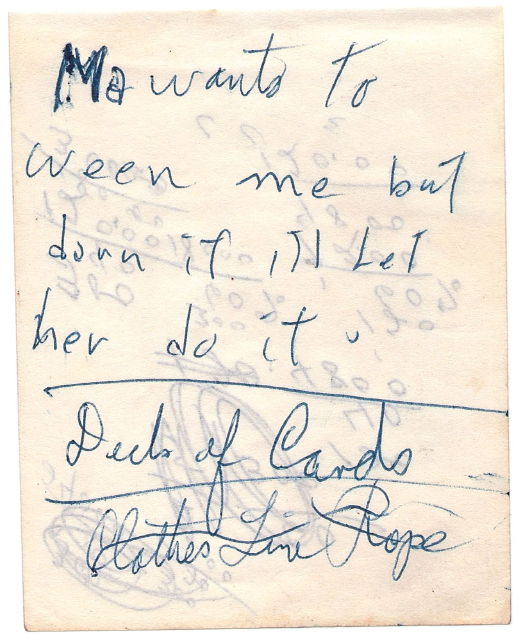 Ma wants to
ween me but
damn if i'll let
her do it.
Deck of Cards
Clothes Line Rope